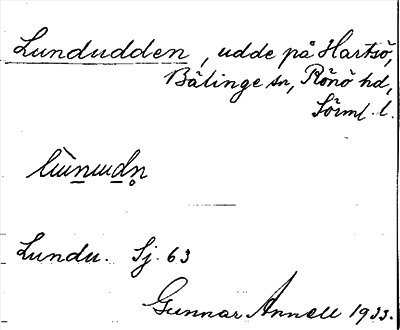 Lundudden, udde på Hartsö,
Bälinge sn, Rönö hd,
Sörml. l.
Lundu. Sj. 63
Gunnar Annell 1933.